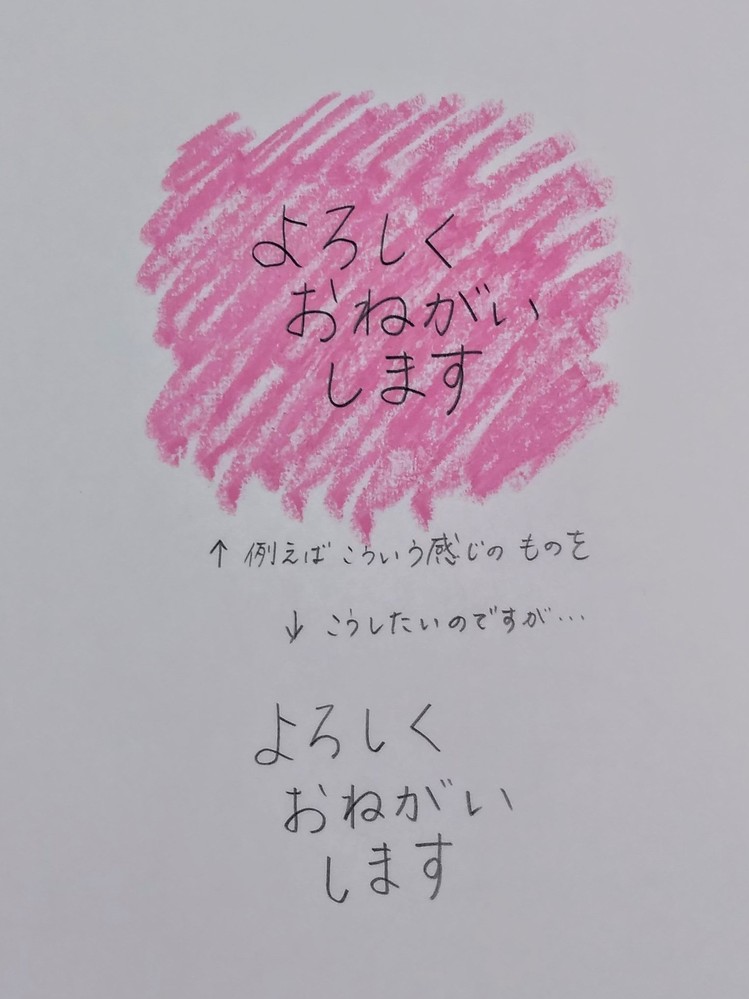 よろしく
おねがい
します
↑ 例えばこういう感じのものを
↓ こうしたいのですが…
よろしく
おねがい
します